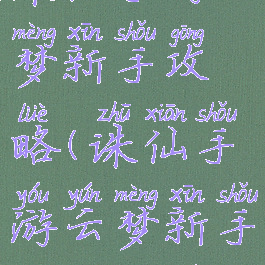 mèng xīn shǒu gōng
梦新手攻
lüè zhū xiān shǒu
略(诛仙手
yóu yún mèng xīn shǒu
游云梦新手